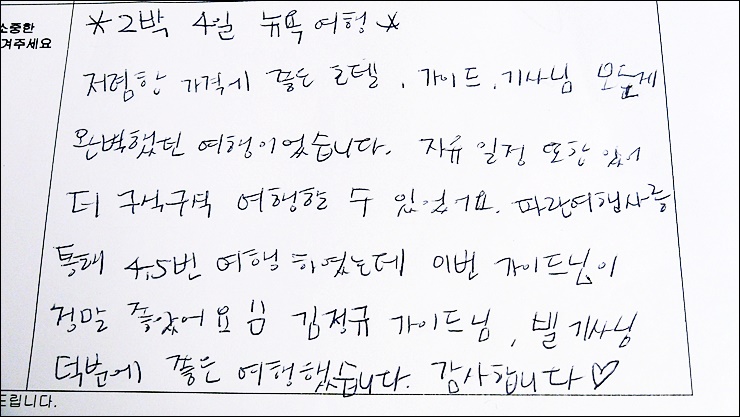 소중한
겨주세요
*2박 4일 뉴욕 여행*
저렴한 가격에 좋은 호텔, 가이드, 기사님 모든게
완벽했던 여행이었습니다. 자유 일정 또한 있어
더 구석구석 여행할 수 있었어요. 파란여행사를
통해 4,5번 여행 하였는데 이번 가이드님이
정말 좋았어요 김정규 가이드님, 빌 기사님
덕분에 좋은 여행했습니다. 감사합니다♡
드립니다.